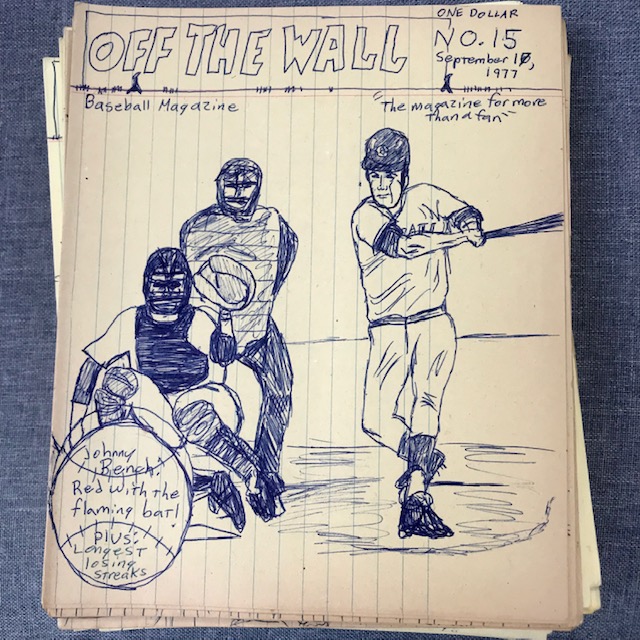 ONE DOLLAR
OFF THE WALL
NO. 15
September 10,
1977
Baseball Magazine
"The magazine for more
than a fan"
Johnny
Bench:
Red with the
flaming bat!
Plus:
Longest
losing
streaks